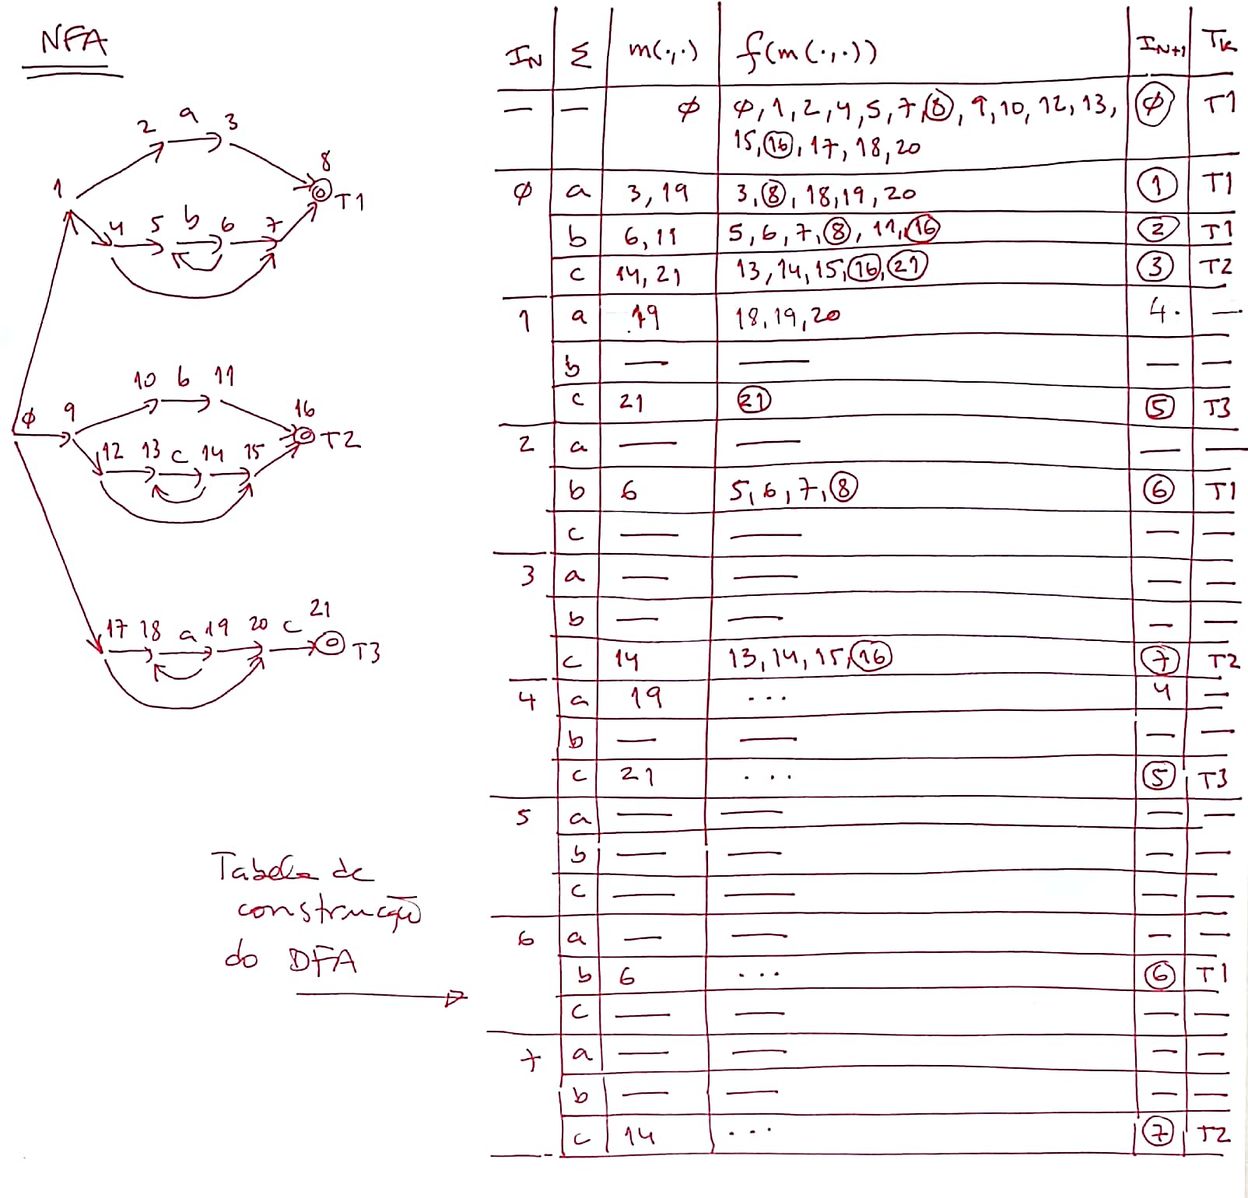 NFA
2 a 3
1
8
T1
4 5 b 6 7
ø 9
10 b 11
16
T2
12 13 c 14 15
17 18 a 19 20 c 21
T3
Tabela de
construção
do DFA
IN Σ m(·,·) f(m(·,·)) IN+1 TK
— — ø ø, 1, 2, 4, 5, 7, 8, 9, 10, 12, 13, ø T1
15, 16, 17, 18, 20
ø a 3, 19 3, 8, 18, 19, 20 1 T1
b 6, 11 5, 6, 7, 8, 11, 16 2 T1
c 14, 21 13, 14, 15, 16, 21 3 T2
1 a 19 18, 19, 20 4. —
b — — — —
c 21 21 5 T3
2 a — — — —
b 6 5, 6, 7, 8 6 T1
c — — — —
3 a — — — —
b — — — —
c 14 13, 14, 15, 16 7 T2
4 a 19 ... 4 —
b — — — —
c 21 ... 5 T3
5 a — — — —
b — — — —
c — — — —
6 a — — — —
b 6 ... 6 T1
c — — — —
7 a — — — —
b — — — —
c 14 ... 7 T2